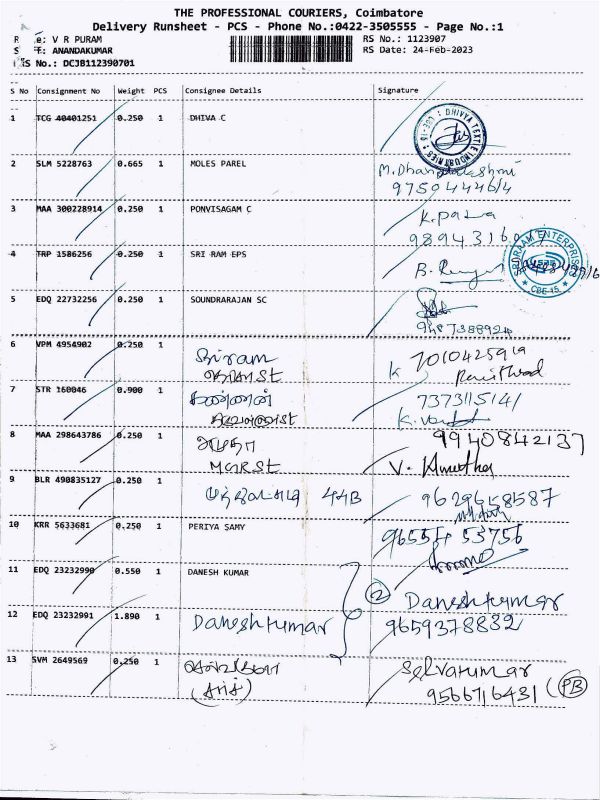 THE PROFESSIONAL COURIERS, Coimbatore
Delivery Runsheet - PCS - Phone No.:0422-3505555 - Page No.:1
: V R PURAM
RS No.: 1123907
: ANANDAKUMAR
RS Date: 24-Feb-2023
S No.: DCJB112390701
S No Consignment No Weight PCS Consignee Details Signature
1 TCG 40401251 0.250 1 DHIVA C
DHIVYA TEXTILE INDUSTRIES
2 SLM 5228763 0.665 1 MOLES PAREL
3 MAA 300228914 0.250 1 PONVISAGAM C
4 TRP 1586256 0.250 1 SRI RAM EPS
SRI RAAM ENTERPRISES
CBE-15
5 EDQ 22732256 0.250 1 SOUNDRARAJAN SC
6 VPM 4954902 0.250 1
7 STR 160046 0.900 1 கண்ணன்
8 MAA 298643786 0.250 1 அமுதா 9940842137
MGR ST V. Amutha
9 BLR 490835127 0.250 1 44B 9629658587
10 KRR 5633681 0.250 1 PERIYA SAMY
11 EDQ 23232990 0.550 1 DANESH KUMAR
2 Daneshkumar
12 EDQ 23232991 1.890 1 Daneshkumar 9659378832
13 SVM 2649569 0.250 1 Selvakumar
9566716431 (PB)